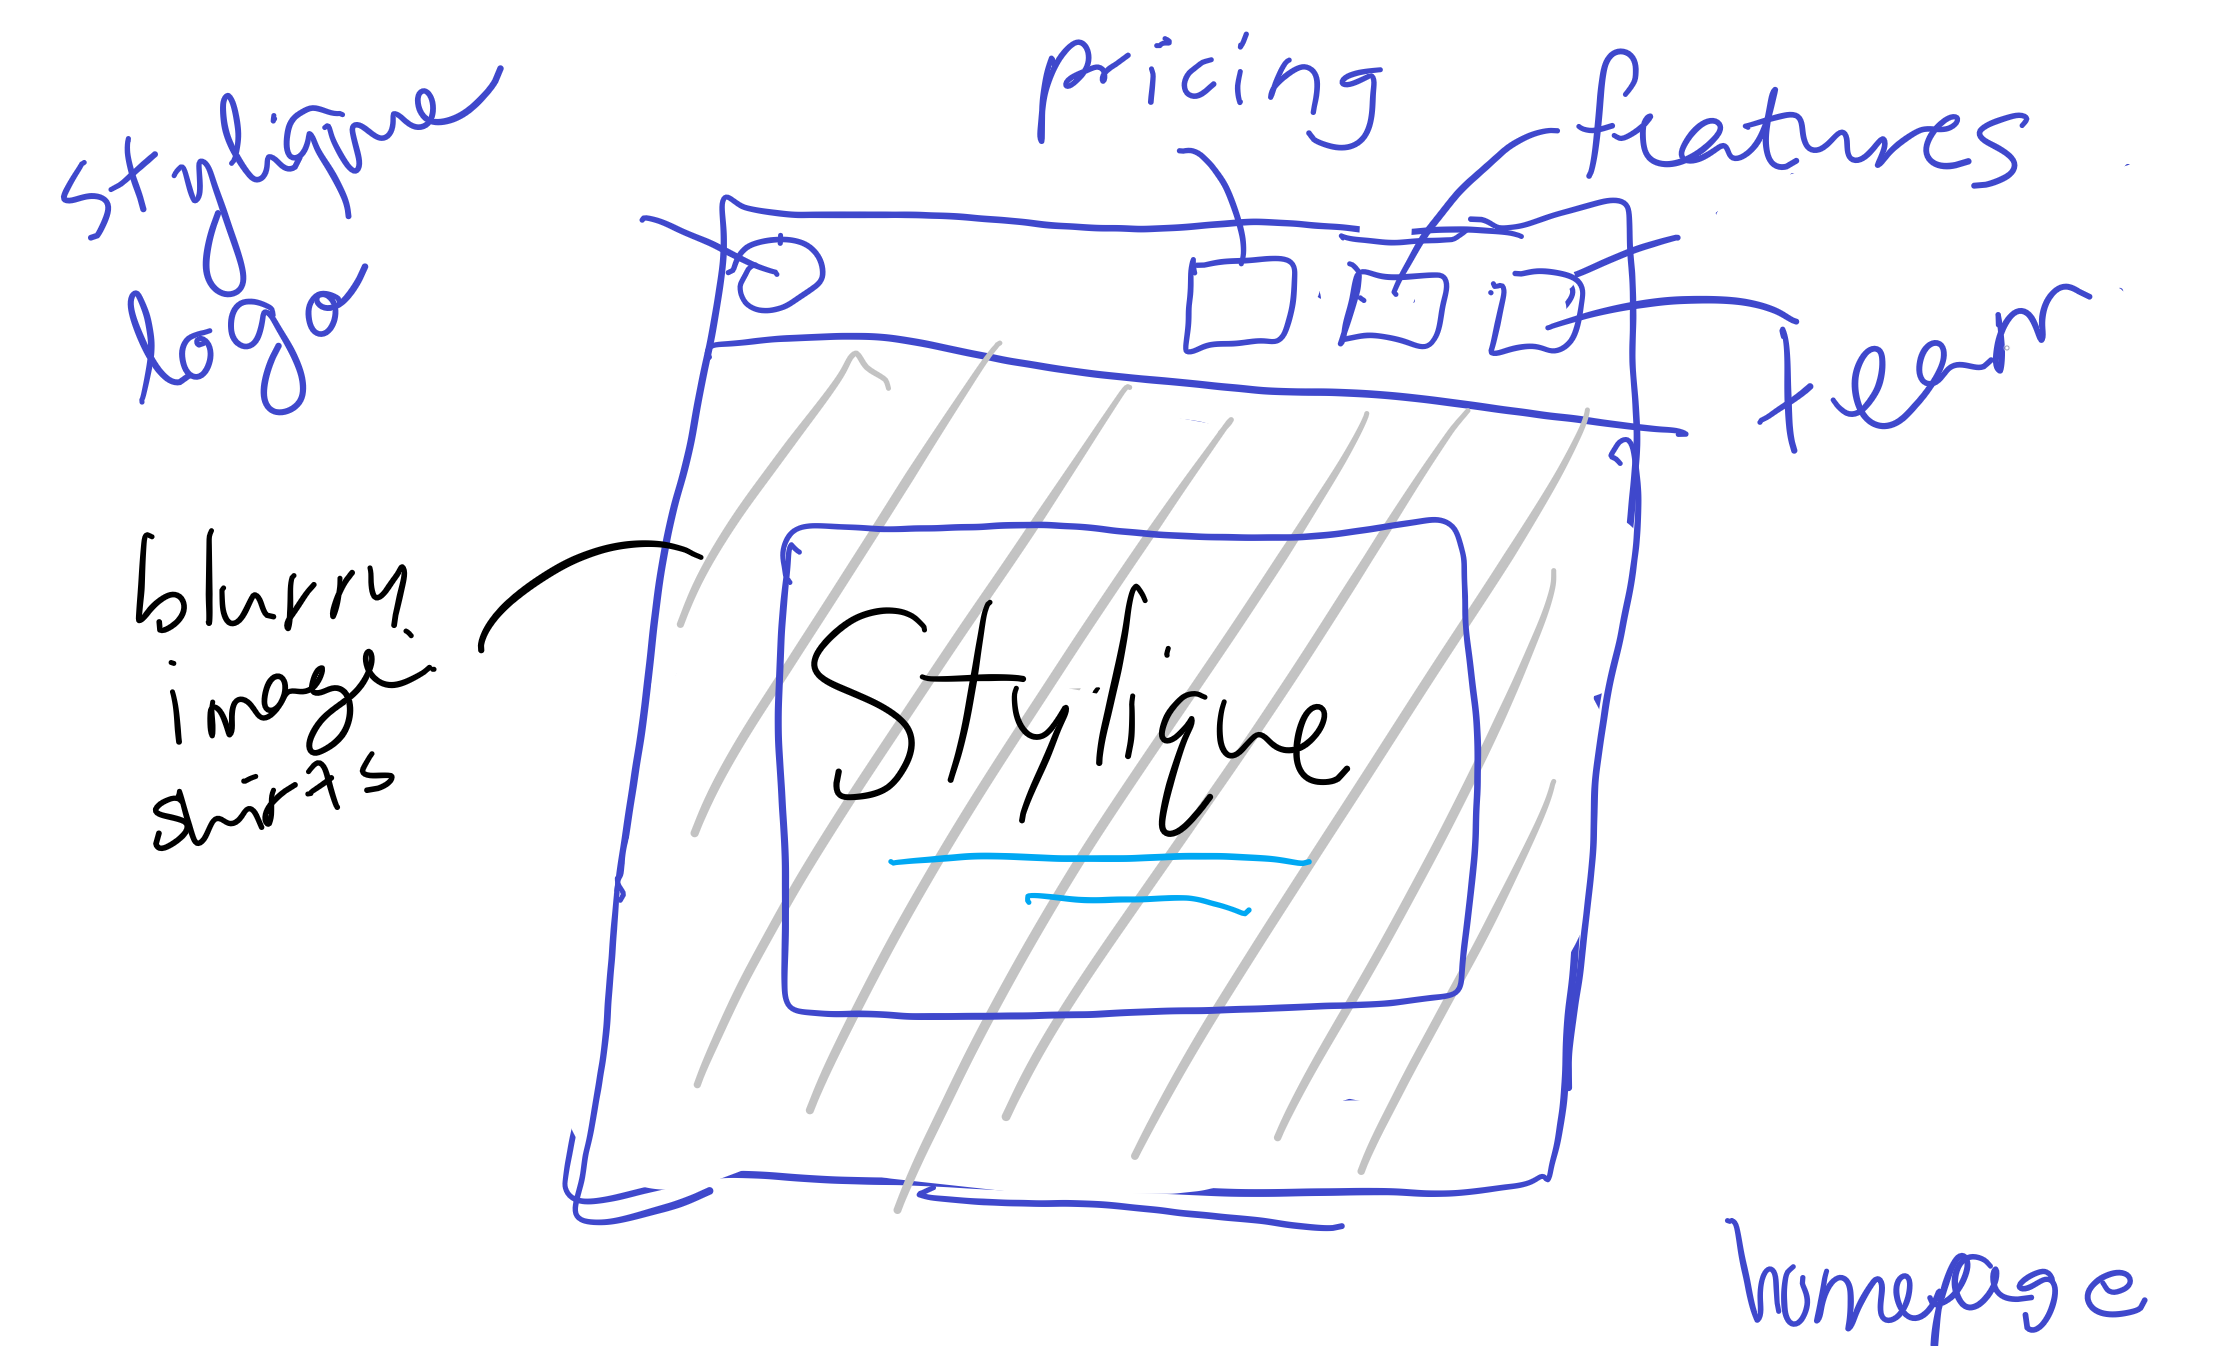 stylique
logo
pricing
features
team
blurry
image
shirts
Stylique
homepage